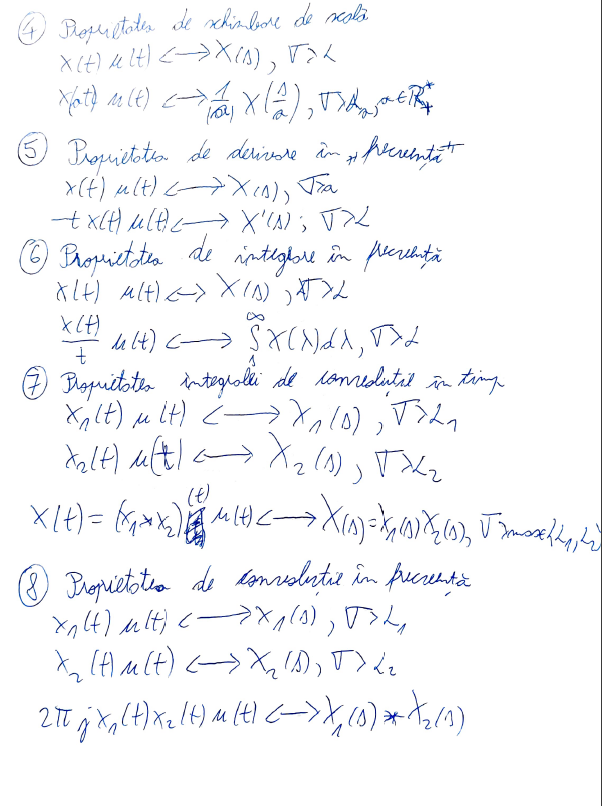 ④ Proprietatea de schimbare de scală
x(t) u(t) ⟷ X(s), σ>L
x(at) u(t) ⟷ 1/|a| X(s/a), σ>L_a, a∈ℝ*₊
⑤ Proprietatea de derivare în frecvență
x(t) u(t) ⟷ X(s), σ>a
-t x(t) u(t) ⟷ X'(s), σ>L
⑥ Proprietatea de integrare în frecvență
x(t) u(t) ⟷ X(s), σ>L
x(t)/t u(t) ⟷ ∫_s^∞ X(λ)dλ, σ>L
⑦ Proprietatea integralei de convoluție în timp
x₁(t) u(t) ⟷ X₁(s), σ>L₁
x₂(t) u(t) ⟷ X₂(s), σ>L₂
x(t) = (x₁*x₂)(t) u(t) ⟷ X(s)=X₁(s)X₂(s), σ>max{L₁,L₂}
⑧ Proprietatea de convoluție în frecvență
x₁(t) u(t) ⟷ X₁(s), σ>L₁
x₂(t) u(t) ⟷ X₂(s), σ>L₂
2πj x₁(t)x₂(t) u(t) ⟷ X₁(s) * X₂(s)